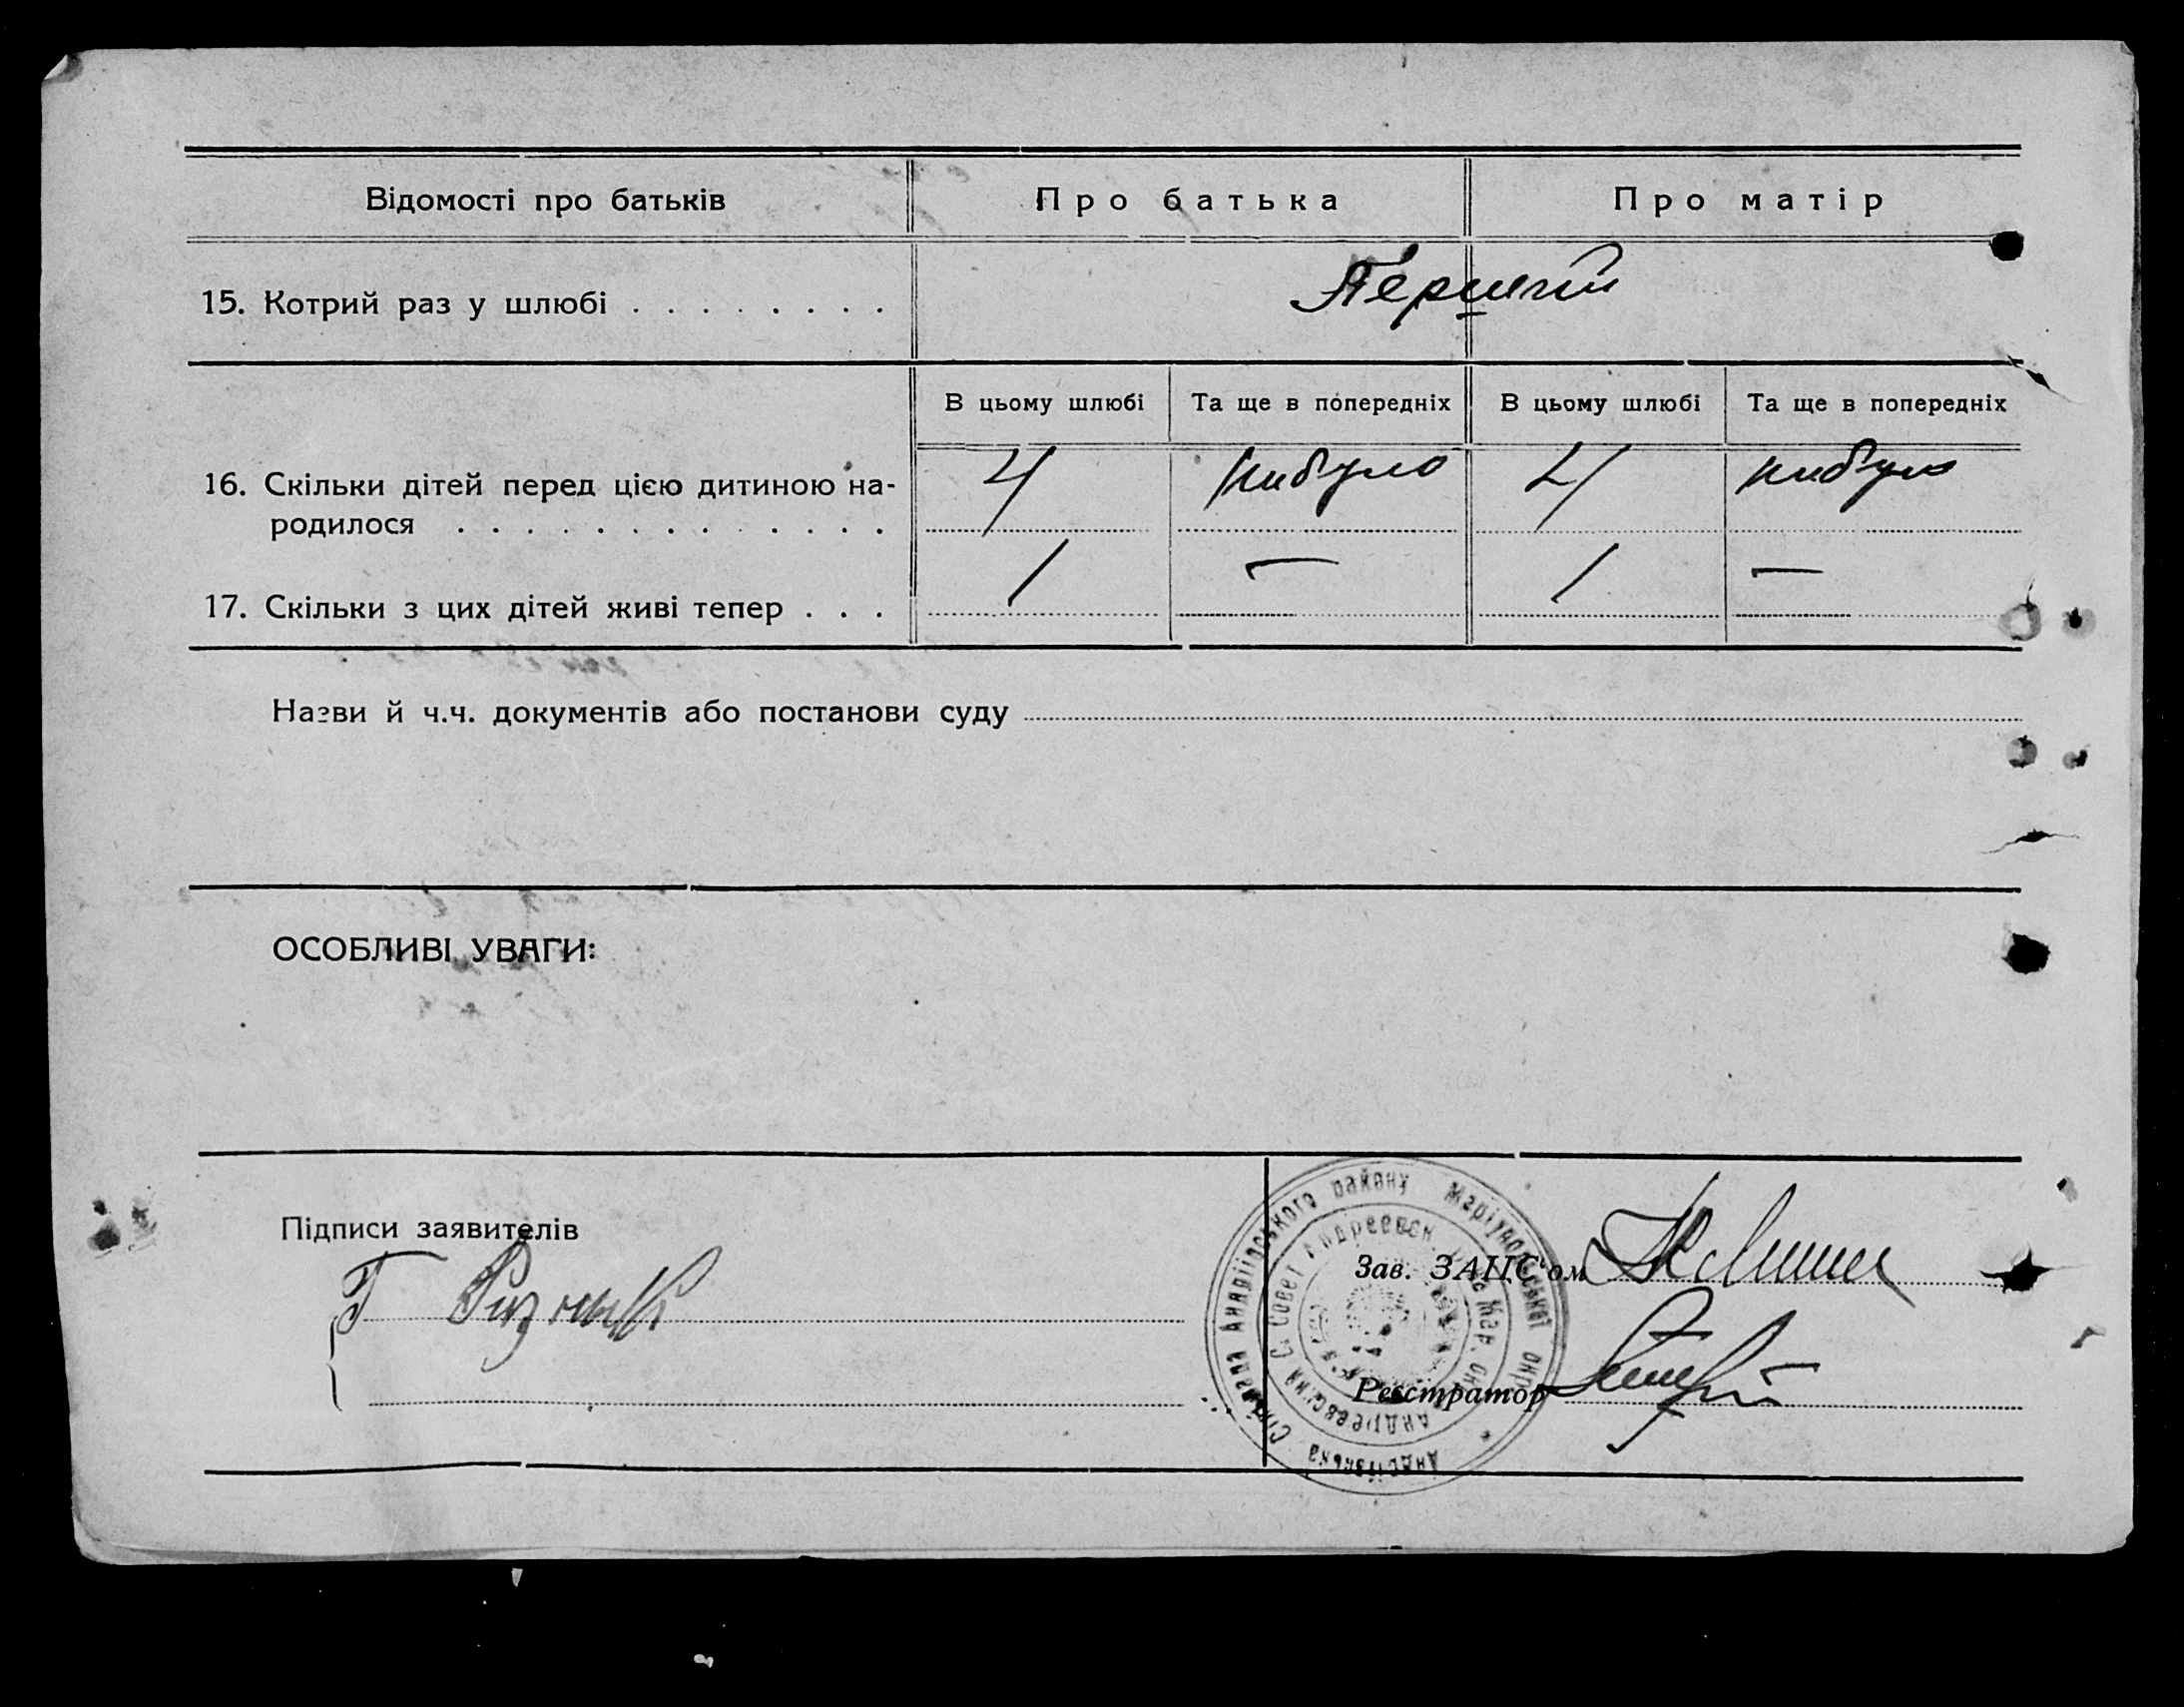 Відомості про батьків
Про батька
Про матір
15. Котрий раз у шлюбі . . . . . . . .
Перший
В цьому шлюбі
Та ще в попередніх
В цьому шлюбі
Та ще в попередніх
16. Скільки дітей перед цією дитиною на-
родилося . . . . . . . . . . . . .
4 нибуло 4 нибуло
17. Скільки з цих дітей живі тепер . . .
1 — 1 —
Назви й ч.ч. документів або постанови суду
ОСОБЛИВІ УВАГИ:
Підписи заявителів
Зав. ЗАЦС'ом
Реєстратор
району Маріупольської окр.